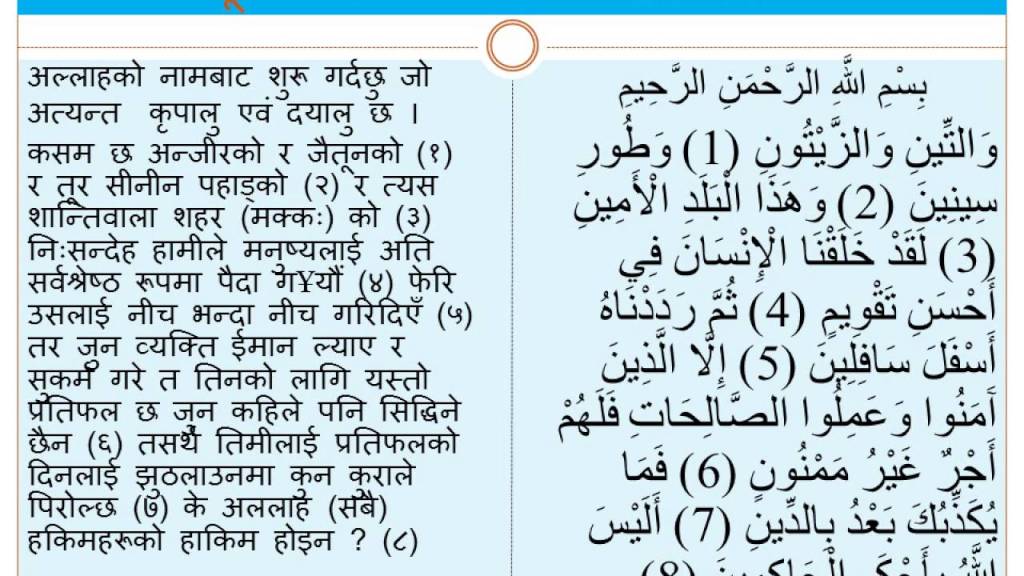 अल्लाहको नामबाट शुरू गर्दछु जो
अत्यन्त कृपालु एवं दयालु छ ।
कसम छ अन्जीरको र जैतूनको (१)
र तूर सीनीन पहाड्को (२) र त्यस
शान्तिवाला शहर (मक्कः) को (३)
निःसन्देह हामीले मनुष्यलाई अति
सर्वश्रेष्ठ रूपमा पैदा ग¥यौं (४) फेरि
उसलाई नीच भन्दा नीच गरिदिएँ (५)
तर जुन व्यक्ति ईमान ल्याए र
सुकर्म गरे त तिनको लागि यस्तो
प्रतिफल छ जुन कहिले पनि सिद्धिने
छैन (६) तसर्थ तिमीलाई प्रतिफलको
दिनलाई झुठलाउनमा कुन कुराले
पिरोल्छ (७) के अललाह (सबै)
हकिमहरूको हाकिम होइन ? (८)
بِسْمِ اللَّهِ الرَّحْمَنِ الرَّحِيمِ
وَالتِّينِ وَالزَّيْتُونِ (1) وَطُورِ
سِينِينَ (2) وَهَذَا الْبَلَدِ الْأَمِينِ
(3) لَقَدْ خَلَقْنَا الْإِنْسَانَ فِي
أَحْسَنِ تَقْوِيمٍ (4) ثُمَّ رَدَدْنَاهُ
أَسْفَلَ سَافِلِينَ (5) إِلَّا الَّذِينَ
آَمَنُوا وَعَمِلُوا الصَّالِحَاتِ فَلَهُمْ
أَجْرٌ غَيْرُ مَمْنُونٍ (6) فَمَا
يُكَذِّبُكَ بَعْدُ بِالدِّينِ (7) أَلَيْسَ
اللَّهُ بِأَحْكَمِ الْحَاكِمِينَ (8)